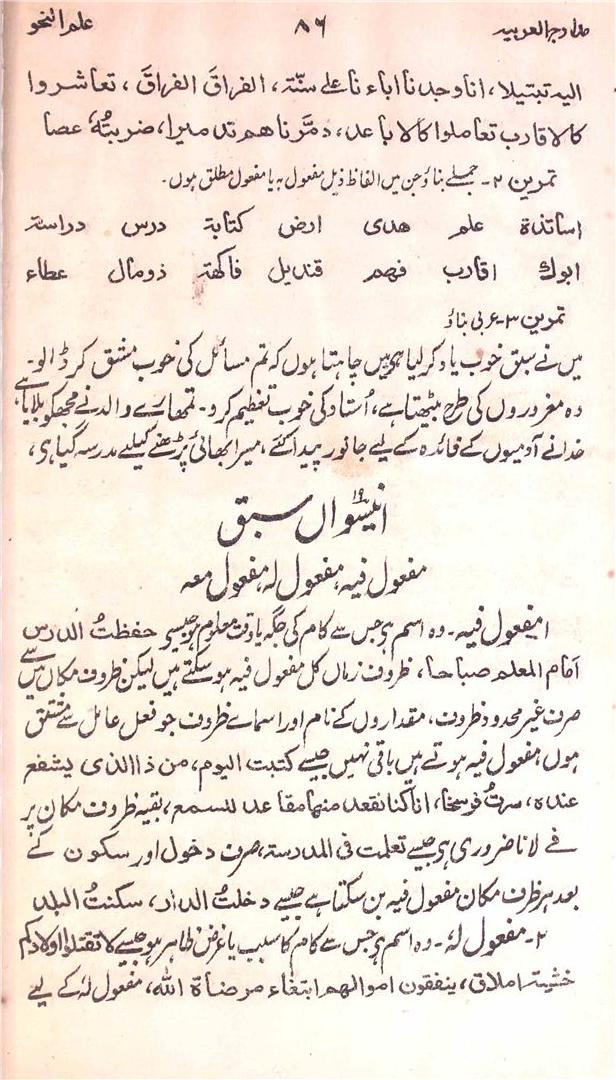 مدارج العربیہ ۸۶ علم النحو
الیه تبتیلا، انا وجدنا اباء نا علی سنّة، الفراقَ الفراقَ، تعاشروا
کالاقارب تعاملوا کالاباعد، دمّرناهم تدمیرا، ضربتُهٗ عصا
تمرین ۲۔ جملے بناؤ جن میں الفاظ ذیل مفعول بہ یا مفعول مطلق ہوں۔
اساتذة علم هدی ارض کتابة درس دراسة
ابوك اقارب فهم قندیل فاکهة ذومال عطاء
تمرین ۳۔ عربی بناؤ
میں نے سبق خوب یاد کر لیا ہی، میں چاہتا ہوں کہ تم مسائل کی خوب مشق کر ڈالو۔
وہ مغروروں کی طرح بیٹھتا ہے، اُستاد کی خوب تعظیم کرو۔ تمھارے والد نے مجھکو بلایا ہے
خدا نے آدمیوں کے فائدہ کے لیے جانور پیدا کئے، میرا بھائی پڑھنے کیلیے مدرسہ گیا ہی،
انیسواں ۱۹ سبق
مفعول فیہ، مفعول لہٗ، مفعول معہ
۱ مفعول فیہ۔ وہ اسم ہی جس سے کام کی جگہ یا وقت معلوم ہو جیسے حفظتُ الدرس
امام المعلم صباحا، ظروف زماں کل مفعول فیہ ہو سکتے ہیں لیکن ظروف مکان میں سے
صرف غیر محدود ظروف، مقداروں کے نام اور اسمائے ظروف جو فعل عامل سے مشتق
ہوں، مفعول فیہ ہوتے ہیں باقی نہیں جیسے کتبت الیوم، من ذا الذی یشفع
عنده، سرتُ فرسخا، انا کنا نقعد منها مقاعد للسمع، بقیہ ظروف مکان پر
فے لانا ضروری ہی جیسے تعلمت فی المدرسة، صرف دخول اور سکون کے
بعد ہر ظرف مکان مفعول فیہ بن سکتا ہے جیسے دخلتُ الدار، سکنتُ البلد
۲۔ مفعول لہٗ۔ وہ اسم ہی جس سے کام کا سبب یا غرض ظاہر ہو جیسے لا تقتلوا اولادکم
خشیة املاق، ینفقون اموالهم ابتغاء مرضاة الله، مفعول لہٗ کے لیے